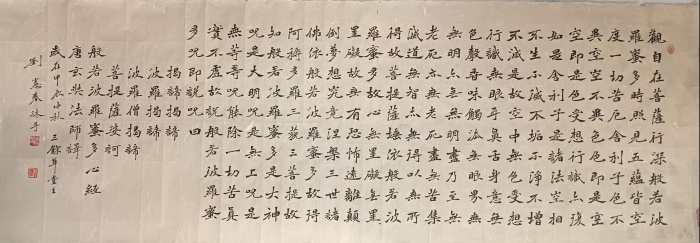 觀自在菩薩行深般若波
羅蜜多時照見五蘊皆空
度一切苦厄舍利子色不
異空空不異色色即是空
空即是色受想行識亦復
如是舍利子是諸法空相
不生不滅不垢不淨不增
不減是故空中無色無受想
行識無眼耳鼻舌身意無
色聲香味觸法無眼界無
無明亦無無明盡乃至無
老死亦無老死盡無苦集
滅道無智亦無得以無所
得故菩提薩埵依般若波
羅蜜多故心無罣礙無罣
礙故無有恐怖遠離顛
倒夢想究竟涅槃三世諸
佛依般若波羅蜜多故得
阿耨多羅三藐三菩提故
知般若波羅蜜多是大神
咒是大明咒是無上咒是
無等等咒能除一切苦真
實不虛故說般若波羅蜜
多咒即說咒曰
揭諦揭諦
波羅揭諦
波羅僧揭諦
菩提薩婆訶
般若波羅蜜多心經
唐玄奘法師譯
歲在甲辰秋三餘草堂主
劉春沐手